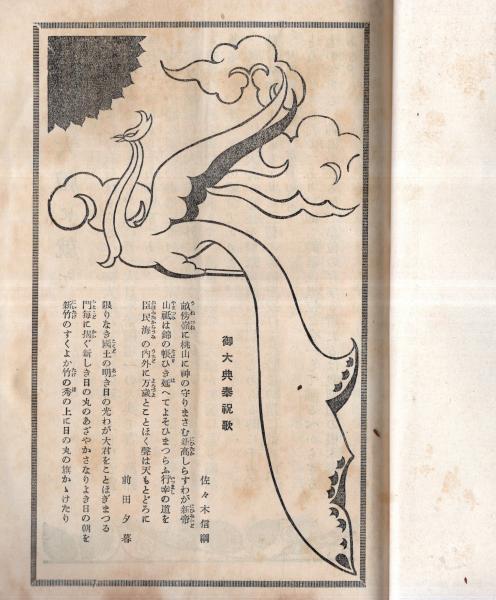 御大典奉祝歌
佐々木信綱
畝傍嶺に桃山に神の守りまさむ新高しらすわが新帝
山祇は錦の帳ひき延へてよそひまつらふ行幸の道を
臣民海の内外に万歳とことほく聲は天もとどろに
前田夕暮
限りなき國土の明き日の光わが大君をことほぎまつる
門毎に掲ぐ新しき日の丸のあざやかさなりよき日の朝を
新竹のすくよか竹の秀の上に日の丸の旗かゝげたり